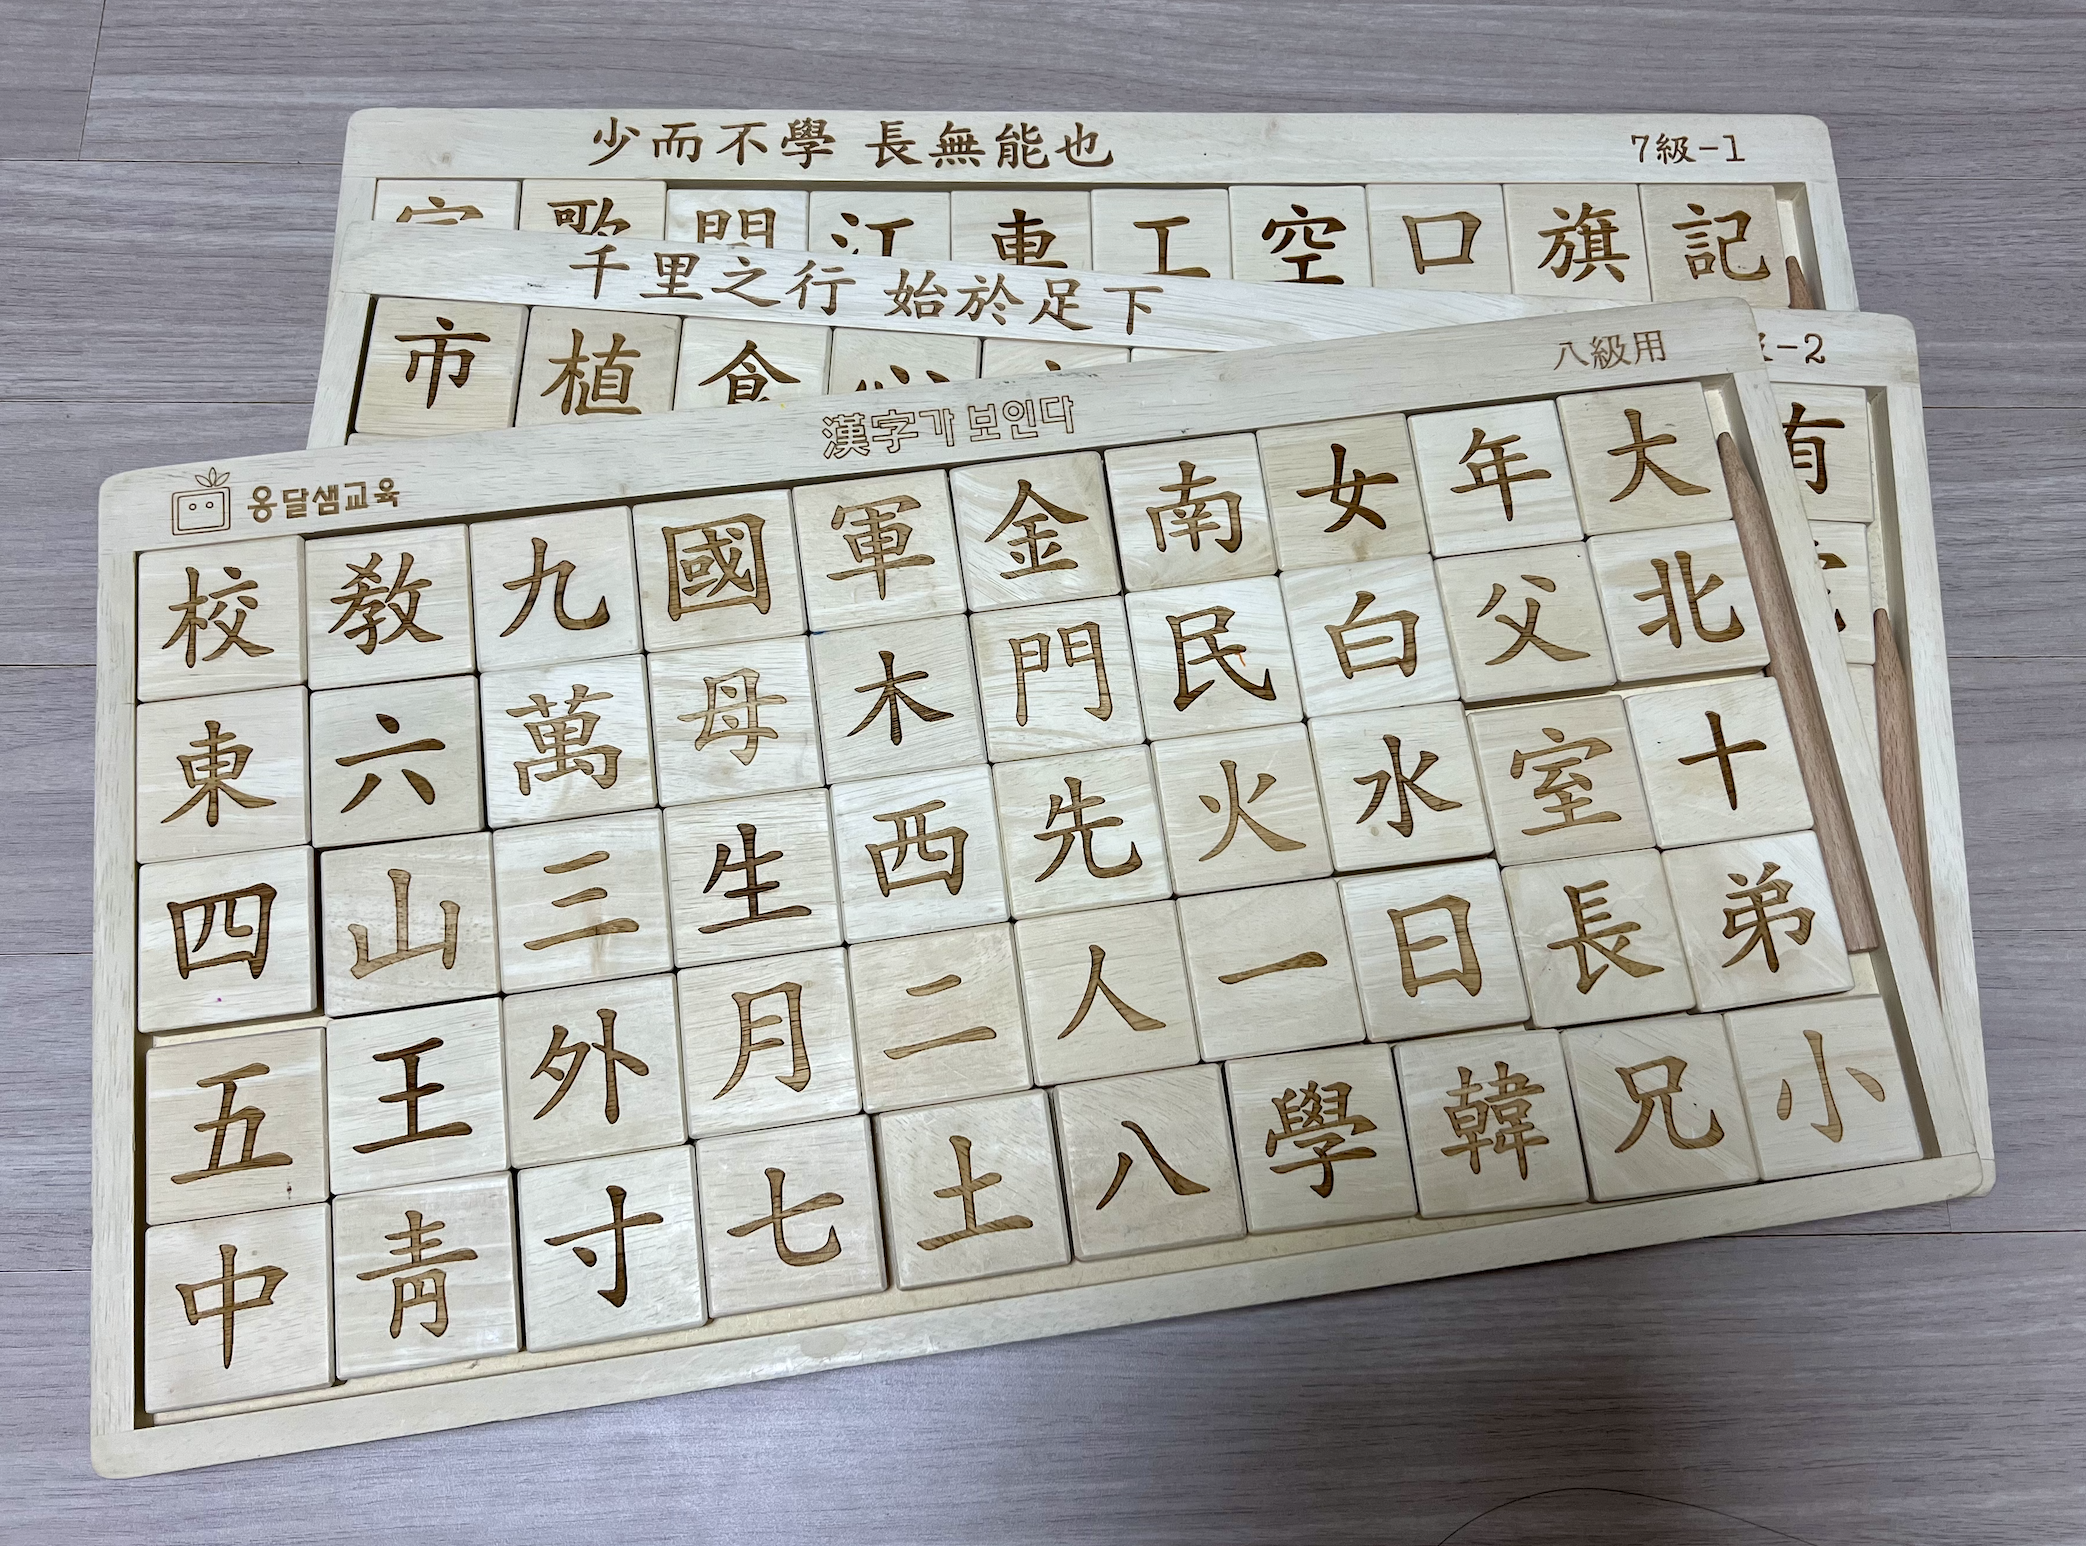 少而不學 長無能也
7級-1
家 歌 間 江 車 工 空 口 旗 記
千里之行 始於足下
-2
市 植 食 心
有
八級用
漢字가 보인다
옹달샘교육
校 敎 九 國 軍 金 南 女 年 大
東 六 萬 母 木 門 民 白 父 北
四 山 三 生 西 先 火 水 室 十
五 王 外 月 二 人 一 日 長 弟
中 靑 寸 七 土 八 學 韓 兄 小